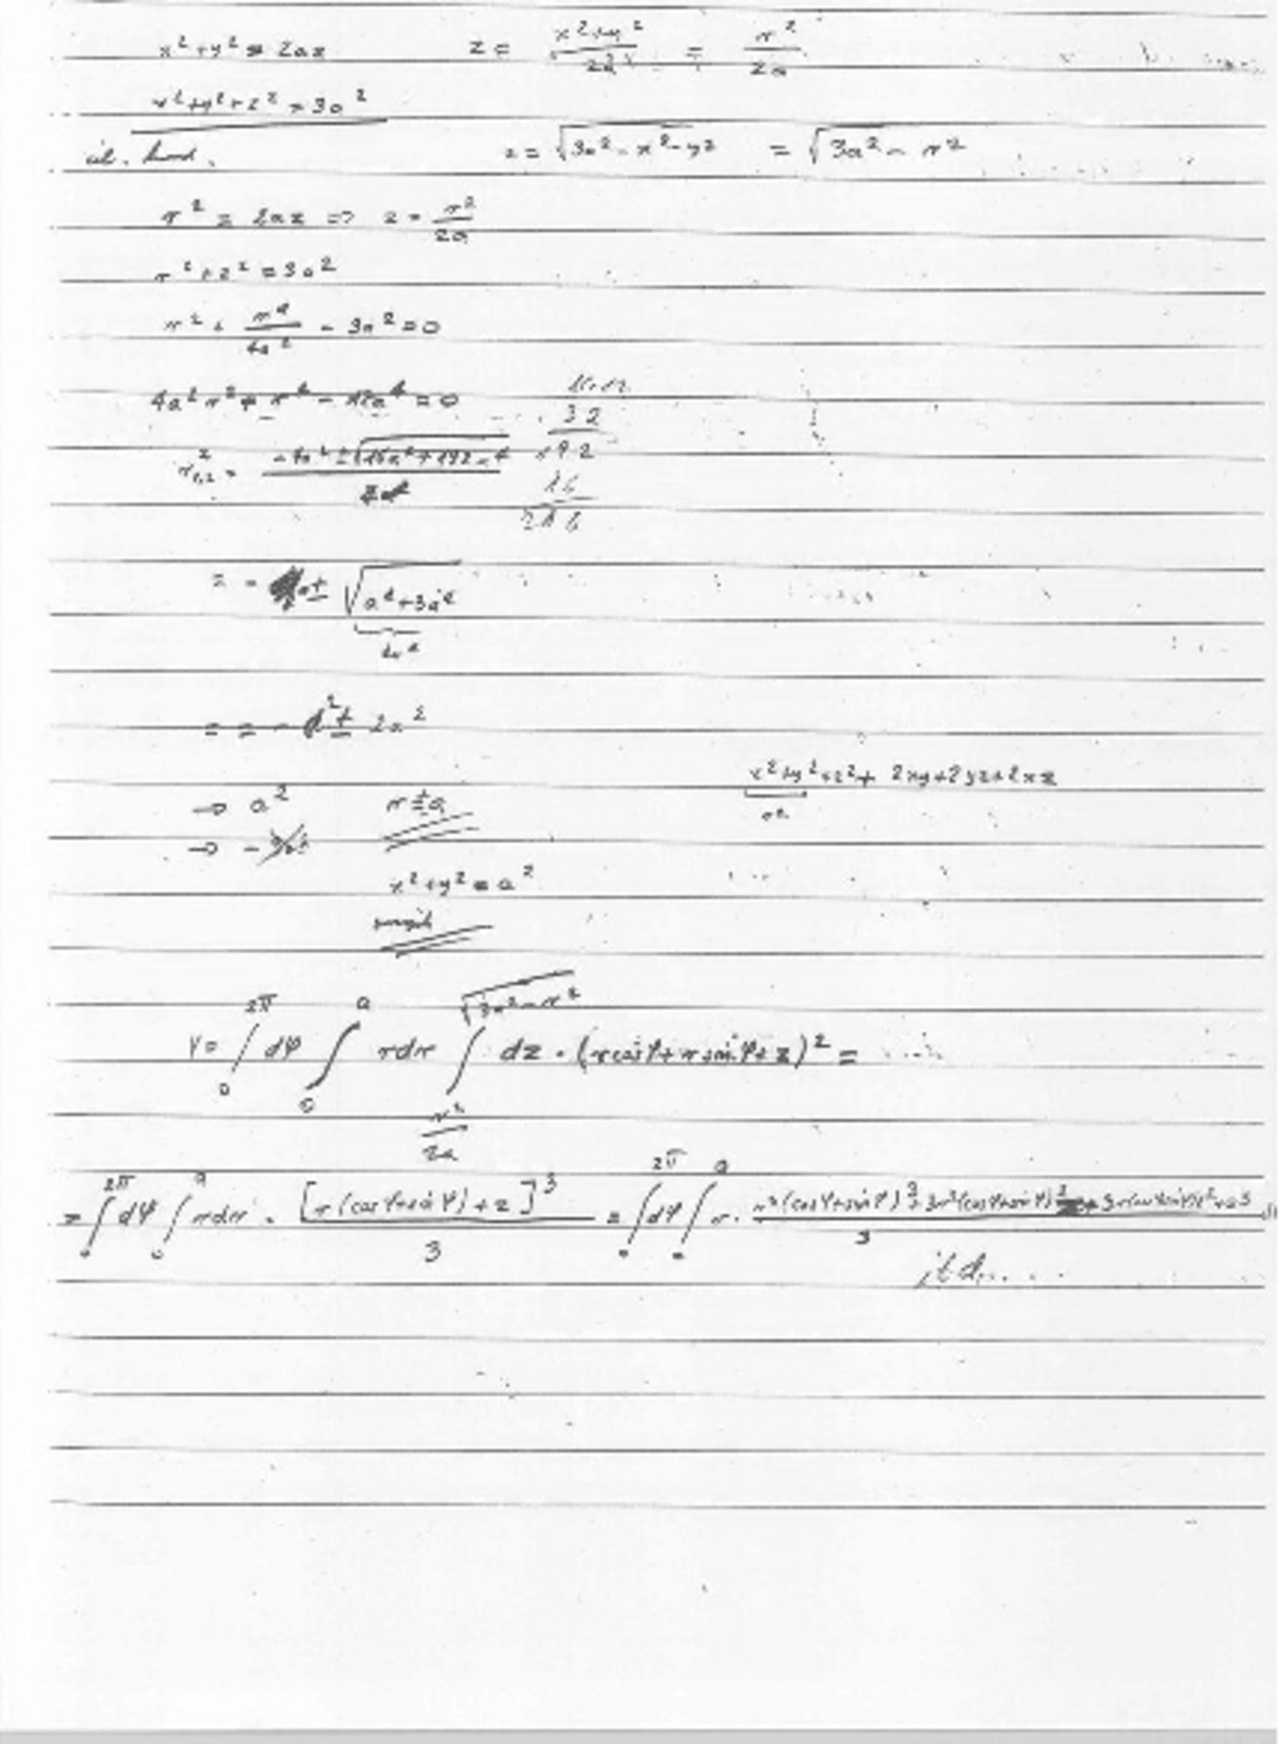 x²+y² = 2az z = x²+y²/2a = r²/2a
x²+y²+z² = 3a²
z = √3a²-x²-y² = √3a²-r²
r² = 2az ⇒ z = r²/2a
r²+z² = 3a²
r² + r⁴/4a² - 3a² = 0
4a²r² + r⁴ - 12a⁴ = 0
32
r²₁,₂ = -4a² ± √16a⁴+192a⁴ / 2 192
16
216
= - ± √a⁴+3a⁴
4a⁴
= = - a² ± 2a²
x²+y²+z²+ 2xy+2yz+2xz
r²
→ a² r=a
→ -3a²
x²+y² = a²
V = ∫₀^2π dφ ∫₀^a rdr ∫_r²/2a^√3a²-r² dz · (rcosφ+rsinφ+z)² =
= ∫₀^2π dφ ∫₀^a rdr · [r(cosφ+sinφ)+z]³/3 = ∫₀^2π dφ ∫₀^a r · r³(cosφ+sinφ)³+3r²(cosφ+sinφ)²z+3r(cosφ+sinφ)z²+z³/3
itd.....